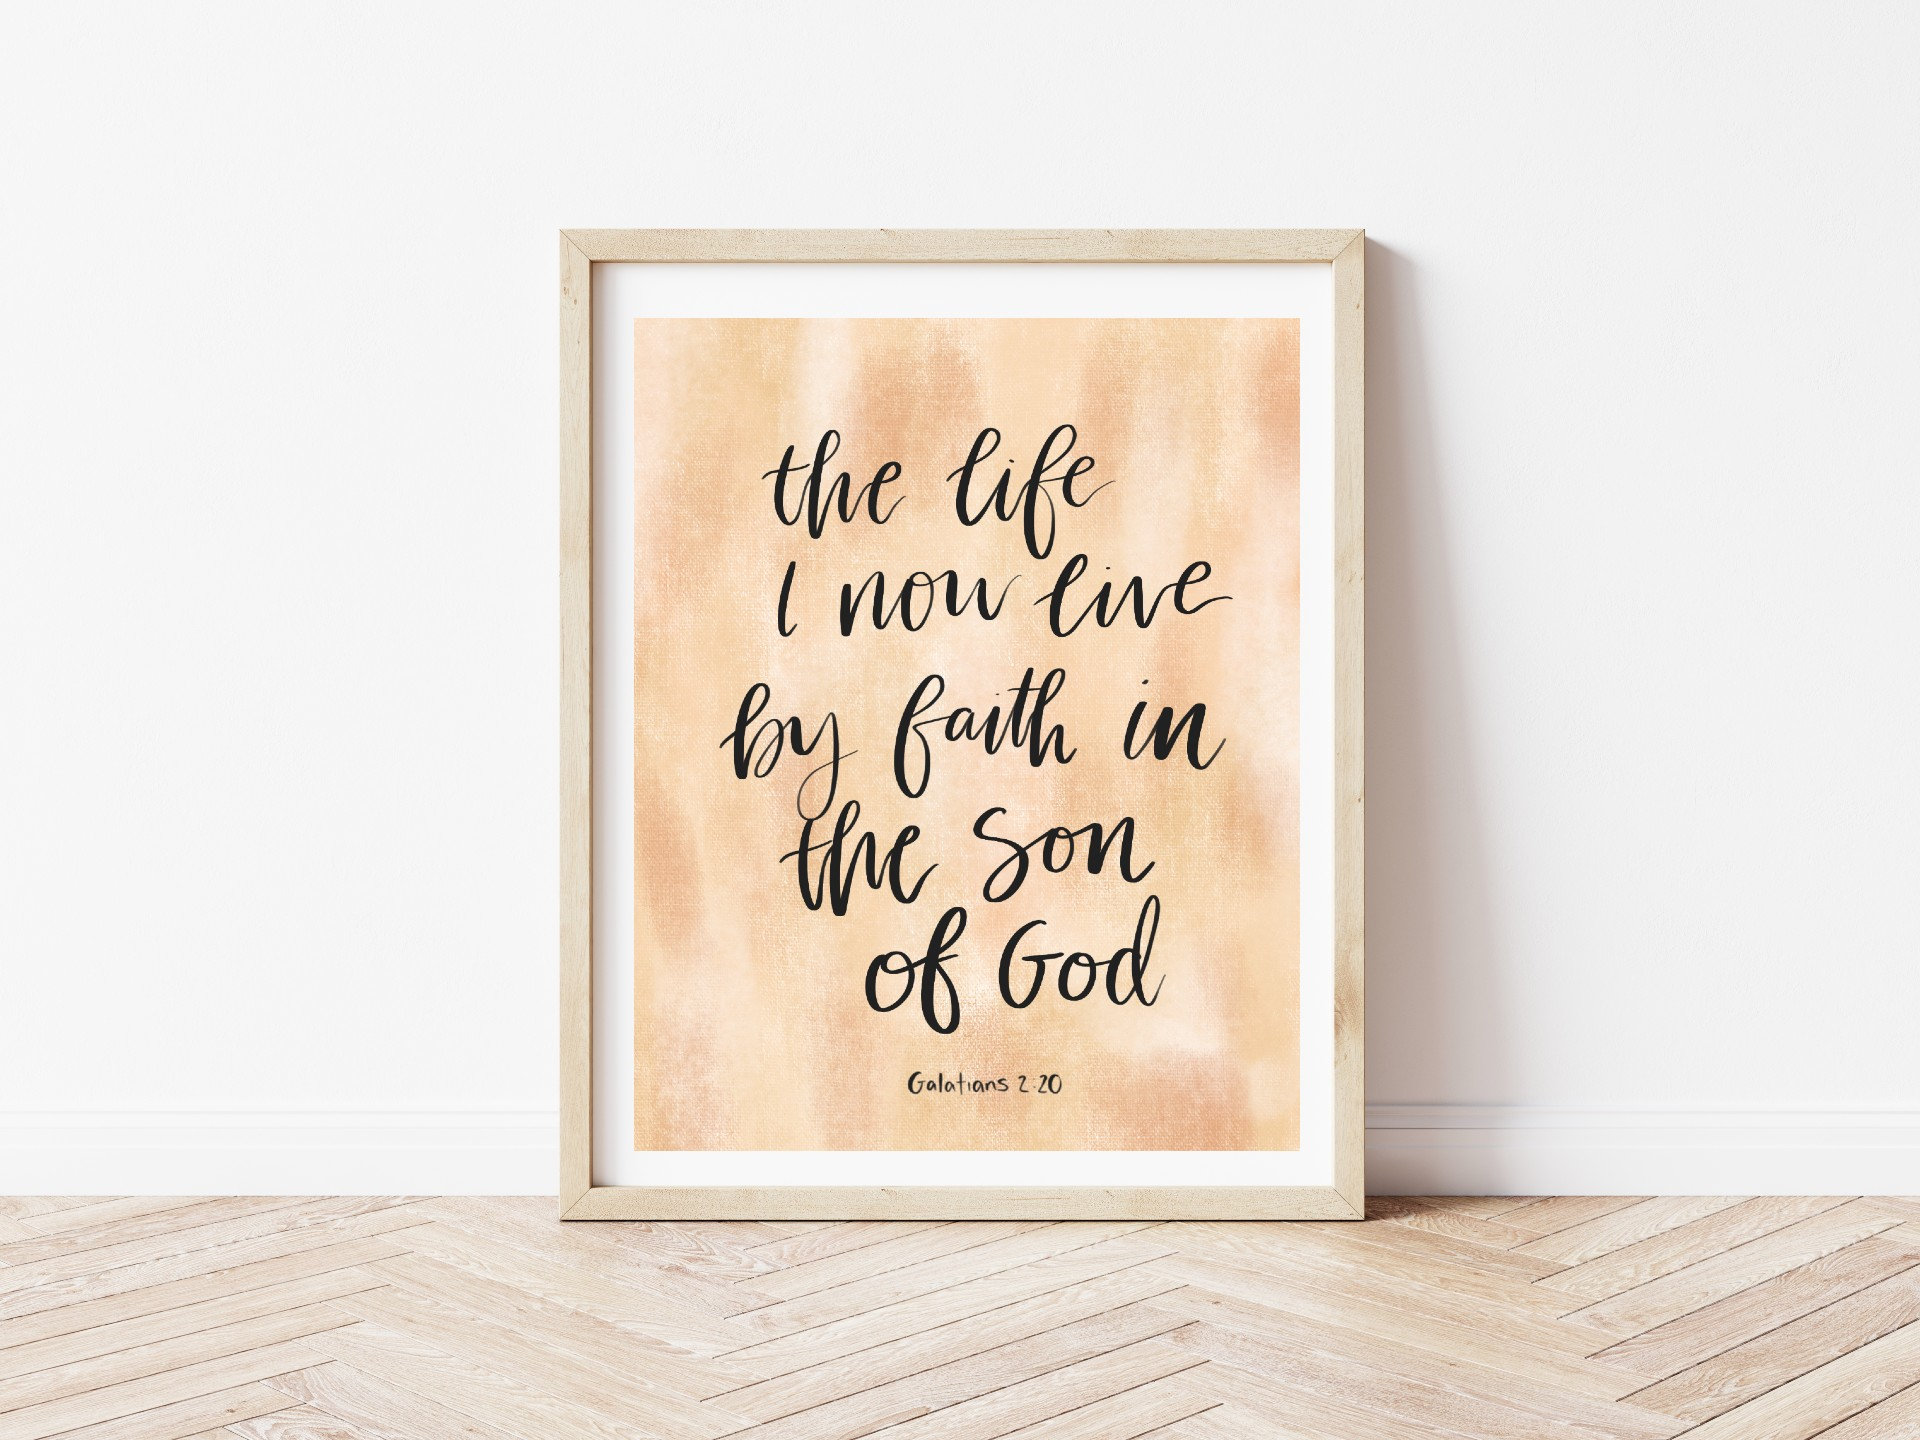 the life
I now live
by faith in
the Son
of God
Galatians 2:20